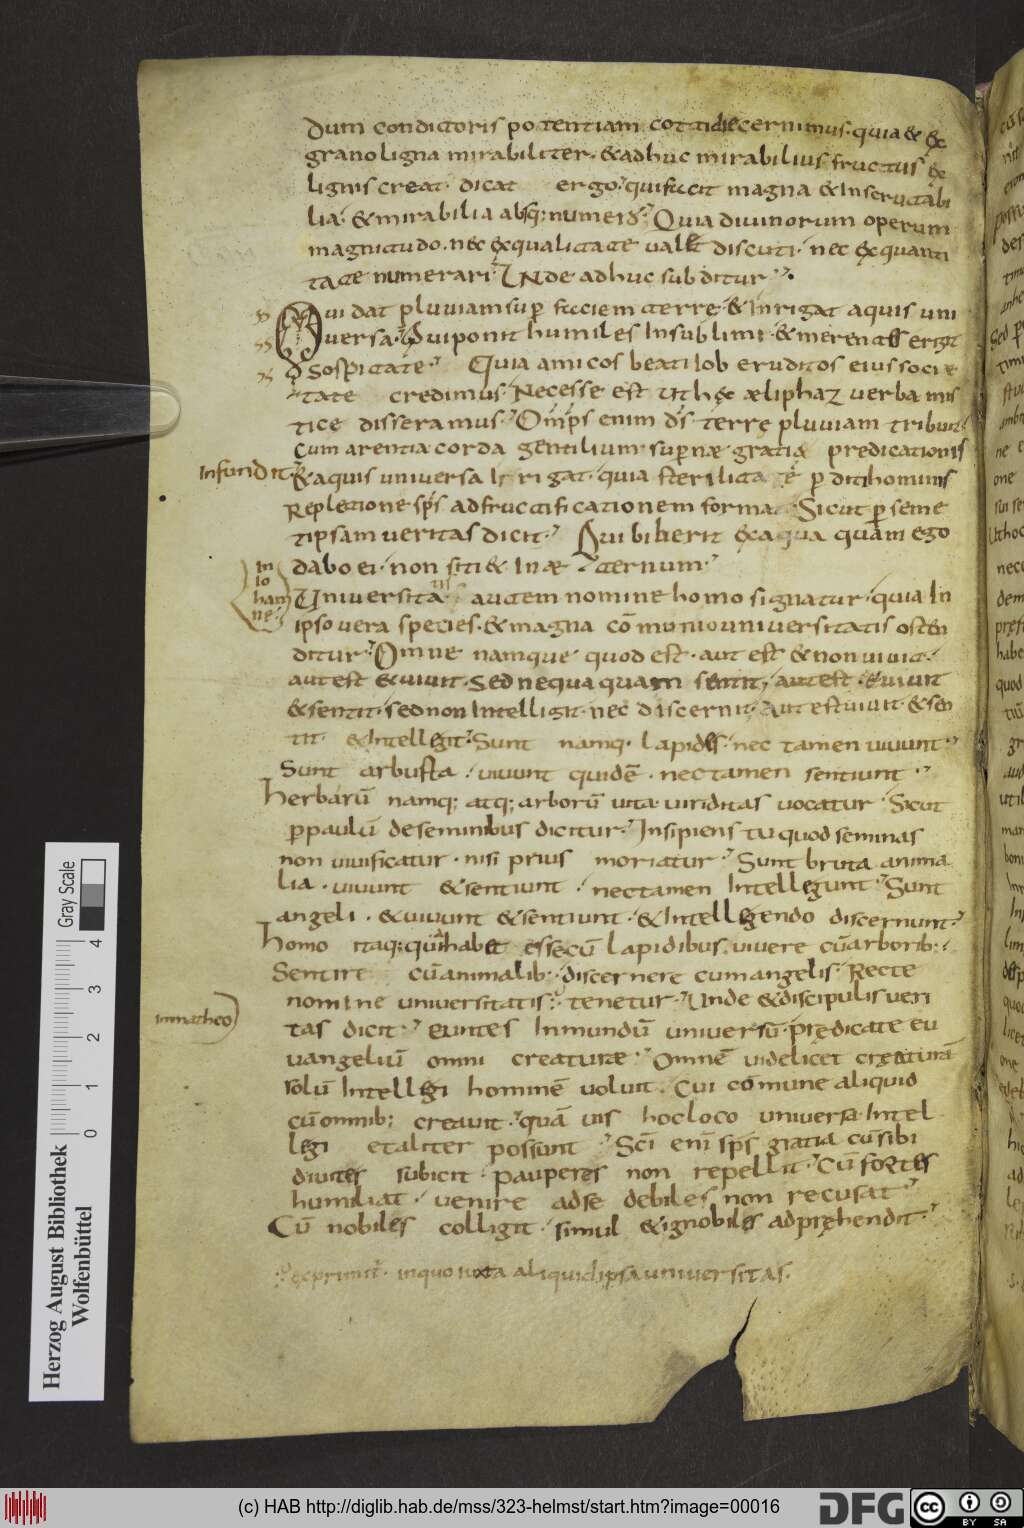 dum conditoris potentiam cottidie cernimus. quia & ex
grano ligna mirabiliter. & adhuc mirabilius fructus ex
lignis creat. dicat ergo. qui facit magna & inscrutabi
lia. & mirabilia absq; numero. Quia divinorum operum
magnitudo. nec ex qualitate valet discuti. nec ex quanti
tate numerari. Unde adhuc subditur.
Qui dat pluviam sup faciem terre. & inrigat aquis uni
versa. Qui ponit humiles in sublimi. & merentes erigit
sospitate. Quia amicos beati iob eruditos eius soci&
tate credimus. Necesse est ut hec æliphaz verba mis
tice disseramus. Omps enim ds terre pluviam tribuit.
Cum arentia corda gentilium supnae gratiæ predicationis
infundit.
& aquis universa irrigat. quia sterilitate pditi hominis
Repletione sps ad fructificationem format. Sicut p seme
tipsam veritas dicit. Qui biberit ex aqua quam ego
dabo ei. non siti& in æternum.
in
io
han
ne
Universitatis autem nomine homo signatur. quia in
ipso vera species. & magna cōmunio universitatis osten
ditur. Omne namque quod est. aut est & non vivit.
aut est & vivit. sed nequaquam sentit. aut est. & vivit
& sentit. sed non intelligit. nec discernit. Aut est vivit. & sen
tit. & intellegit. Sunt namq. lapides. nec tamen vivunt.
Sunt arbusta. vivunt quidē. nec tamen sentiunt.
herbarū namq; atq; arborū vita. viriditas vocatur. Sicut
p paulū de seminibus dicitur. Insipiens tu quod seminas
non vivificatur. nisi prius moriatur. Sunt bruta anima
lia. vivunt & sentiunt. nec tamen intellegunt. Sunt
angeli. & vivunt & sentiunt. & intellegendo discernunt.
homo itaq; quia habet esse cū lapidibus. vivere cū arborib;
Sentire cū animalib; discernere cum angelis. Recte
nomine universitatis. tenetur. Unde & discipulis veri
in matheo
tas dicit. euntes in mundū universū. predicate eu
uangeliū omni creaturae. Omnē videlicet creaturā
solū intellegi hominē voluit. Cui comune aliquid
cū omnib; creavit. quā vis hoc loco universa. intel
legi et aliter possunt. Sci eni sps gratia cū sibi
divites subicit. pauperes non repellit. Cū fortes
humiliat. venire ad se debiles non recusat.
Cū nobiles colligit. simul & ignobiles adprehendit.
exprimit. in quo iuxta aliquid ipsa universitas.
Gray Scale
0 1 2 3 4
Herzog August Bibliothek
Wolfenbüttel
(c) HAB http://diglib.hab.de/mss/323-helmst/start.htm?image=00016
DFG
cc
BY SA